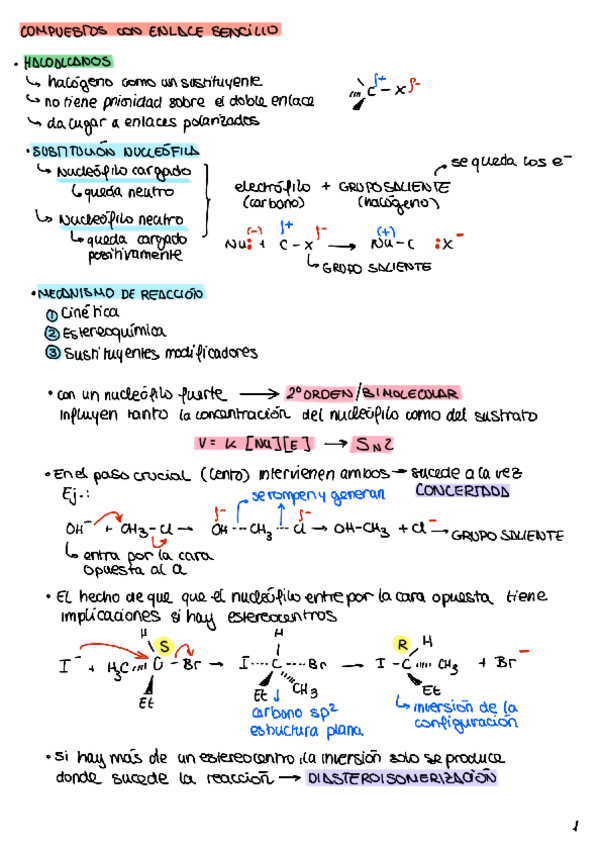 COMPUESTOS CON ENLACE SENCILLO
• HALOALCANOS
↳ halógeno como un sustituyente
↳ no tiene prioridad sobre el doble enlace
↳ da lugar a enlaces polarizados
δ+ δ-
C - X
• SUSTITUCIÓN NUCLEÓFILA
↳ Nucleófilo cargado
↳ queda neutro
↳ Nucleófilo neutro
↳ queda cargado
positivamente
se queda los e⁻
electrófilo + GRUPO SALIENTE
(carbono) (halógeno)
(-) δ+ δ- (+)
Nu: + C - X → Nu - C :X⁻
↳ GRUPO SALIENTE
• MECANISMO DE REACCIÓN
① Cinética
② Estereoquímica
③ Sustituyentes modificadores
• con un nucleófilo fuerte → 2º ORDEN/BIMOLECULAR
Influyen tanto la concentración del nucleófilo como del sustrato
V = K [Nu][E] → SN2
• En el paso crucial (lento) intervienen ambos → sucede a la vez
CONCERTADA
Ej.:
se rompen y generan
OH⁻ + CH3 - Cl → δ- OH ··· CH3 ··· Cl δ- → OH - CH3 + Cl⁻ → GRUPO SALIENTE
↳ entra por la cara
opuesta al Cl
• El hecho de que que el nucleófilo entre por la cara opuesta tiene
implicaciones si hay estereocentros
H S H R H
I⁻ + H3C C - Br → I ···· C ···· Br → I - C CH3 + Br⁻
Et Et CH3 Et
carbono sp²
estructura plana
↳ inversión de la
configuración
• Si hay más de un estereocentro, la inversión solo se produce
donde sucede la reacción → DIASTEROISOMERIZACIÓN
1